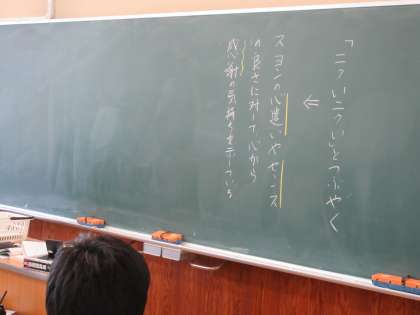 「ニクいニクい」とつぶやく
⇐
スヨンの心遣いやセンス
の良さに対して心から
感謝の気持ちを示している